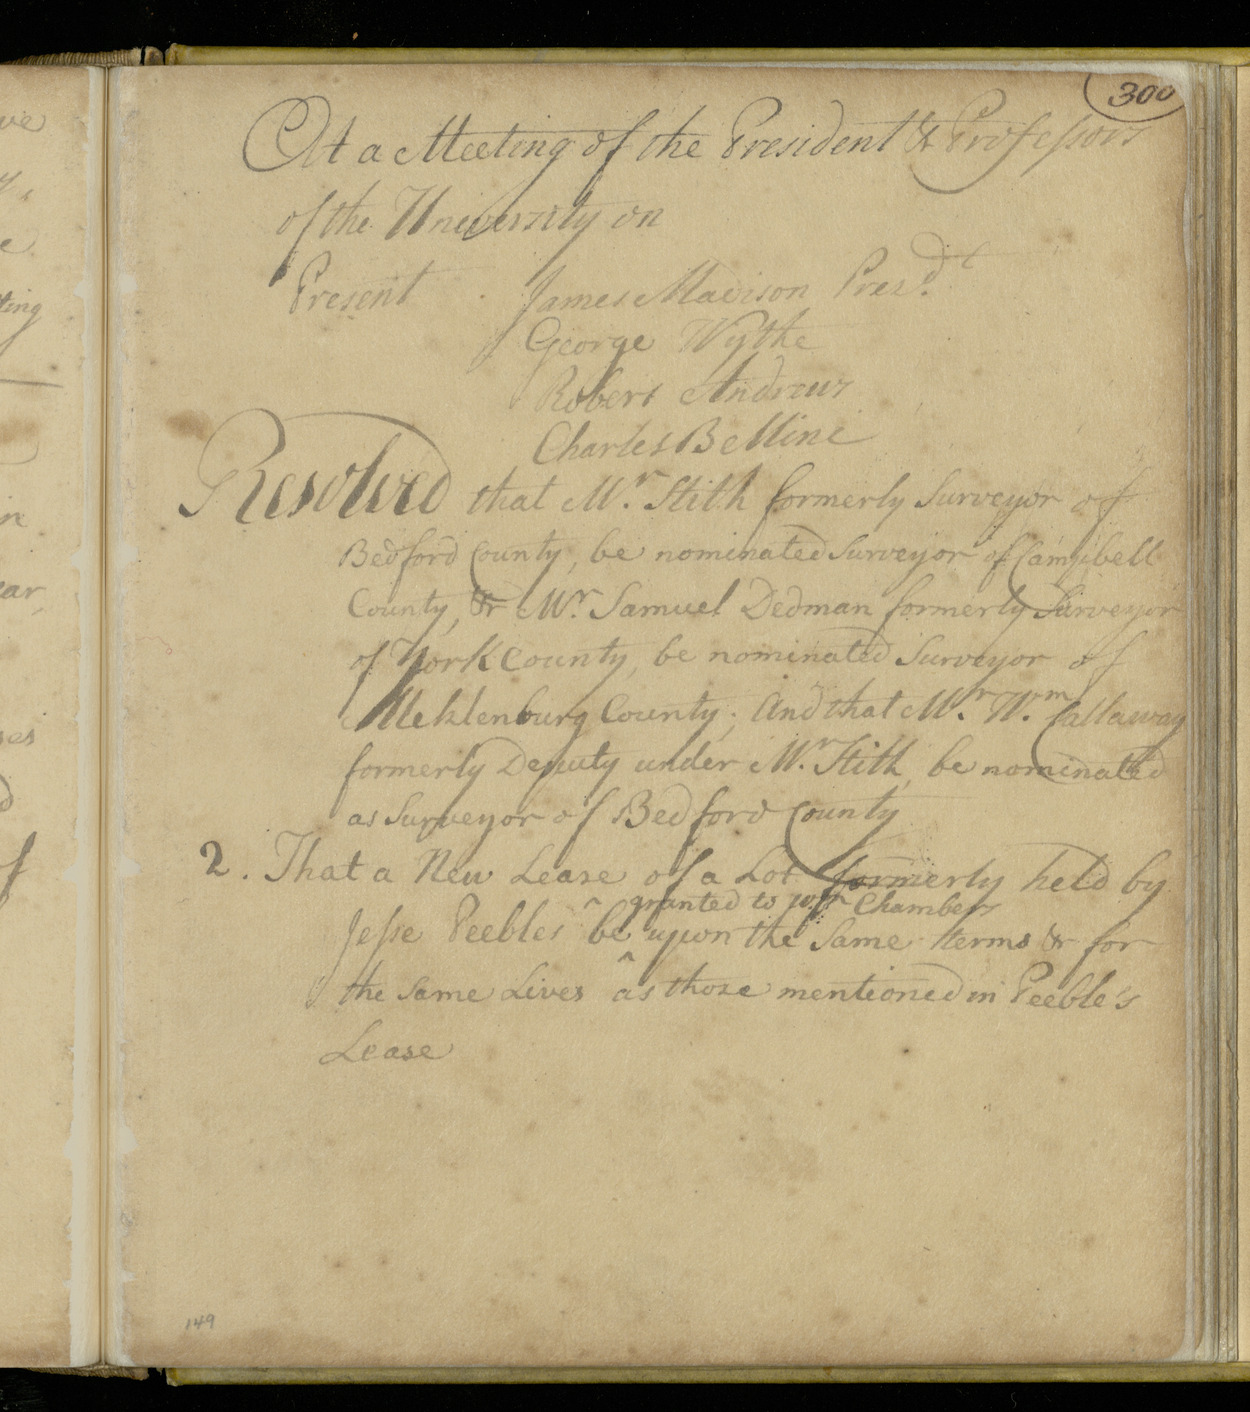 300
At a Meeting of the President & Professors
of the University on
Present James Madison Pres.dt
George Wythe
Robert Andrews
Charles Bellini
Resolved that Mr. Stith formerly Surveyor of
Bedford County, be nominated Surveyor of Campbell
County, & Mr. Samuel Dedman formerly Surveyor
of York County, be nominated Surveyor of
Meklenburg County; And that Mr. Wm. Callaway
formerly Deputy under Mr. Stith, be nominated
as Surveyor of Bedford County
2. That a New Lease of a Lot formerly held by
granted to Wm Chambers
Jesse Peebles ^ be upon the Same terms & for
the Same Lives ^ as those mentioned in Peeble's
Lease
149
ve
y,
e
ting
n
ear,
ses
d
of